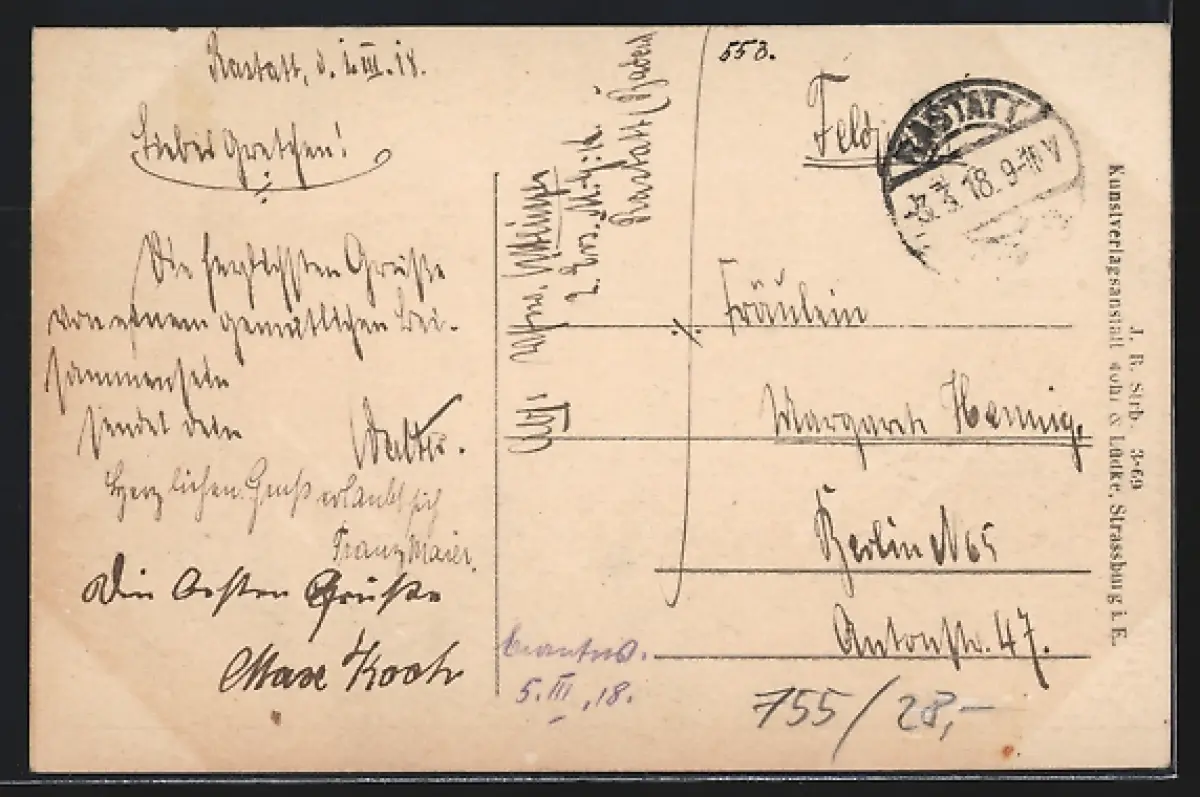 Rastatt, d. 2.III.18.
Liebes Gretchen!
Die herzlichsten Grüße
von einem gemütlichen Bei-
sammensein
sendet dein
Walter.
Herzlichen Gruß erlaubt sich
Franz Maier.
Die besten Grüße
Max Koch
Abs.
Rastatt (Baden)
553.
Feldp
RASTATT
3.3.18. 9-10 V
Fräulein
Margarete Hennig.
Berlin N 65
Antonstr. 47.
beantw.
5.III.18.
755/28,-
J. B. Strb. 3-69
Kunstverlagsanstalt & Lüdke, Strassburg i. E.